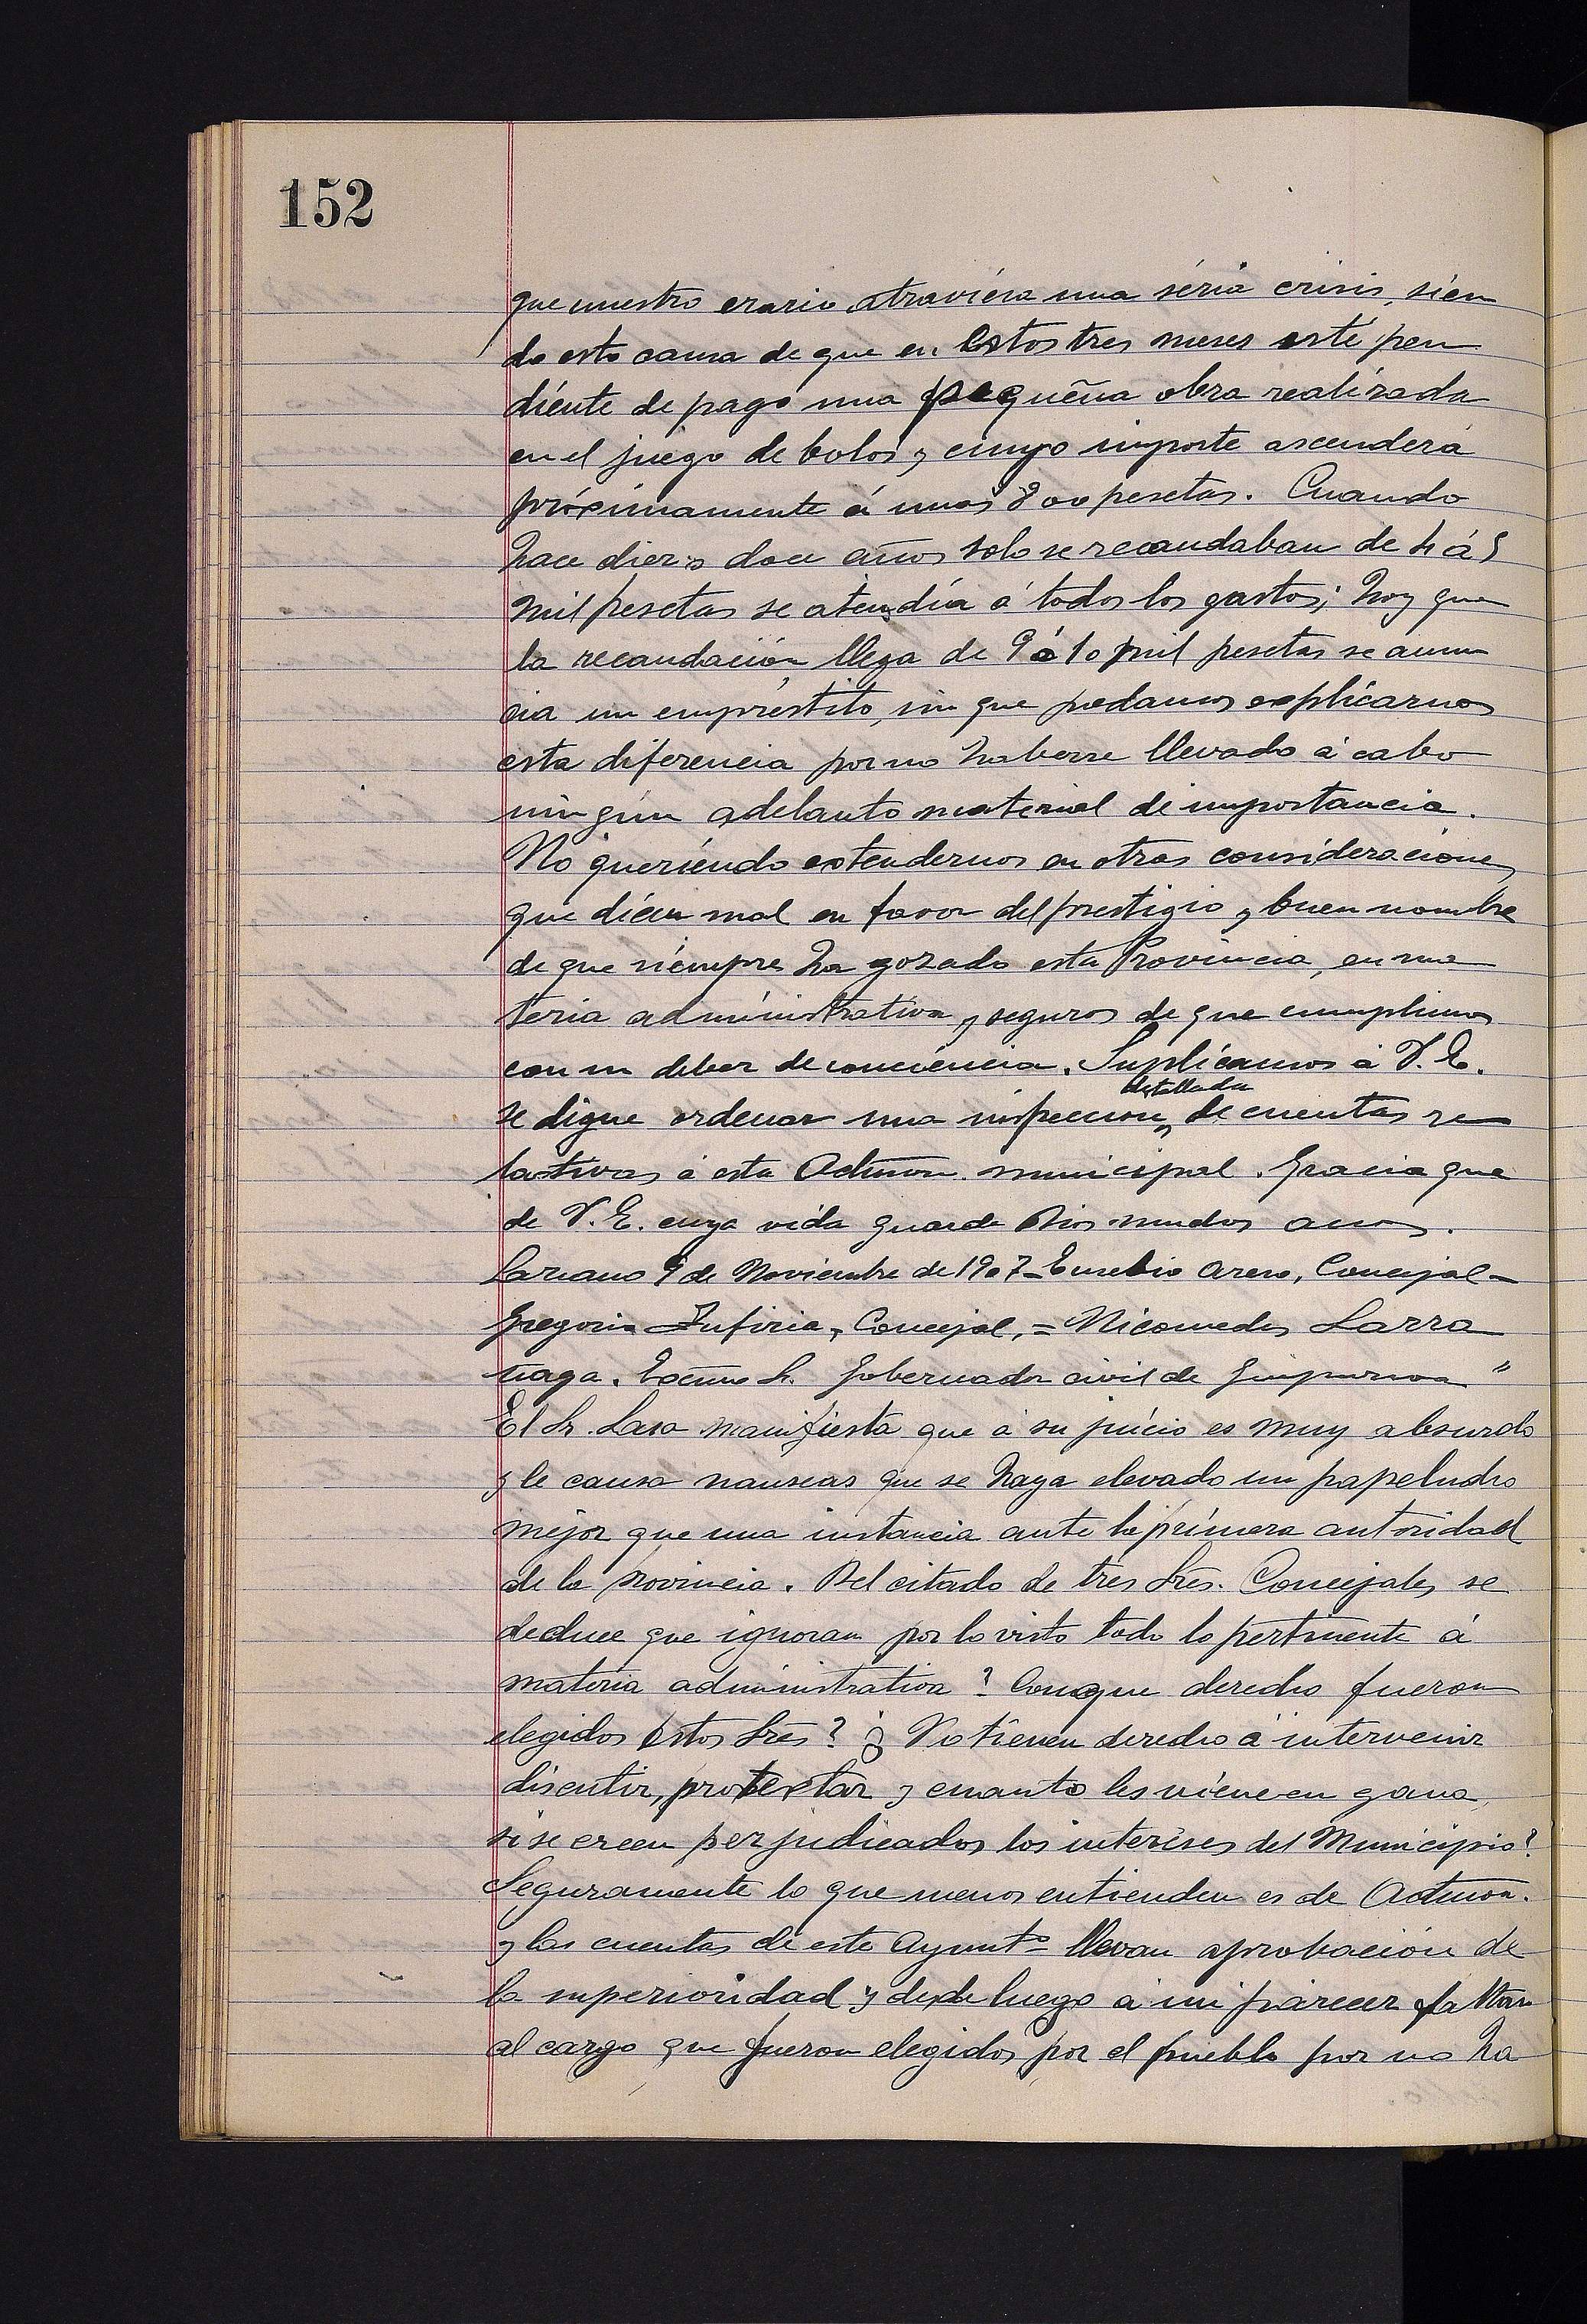 152
que nuestro erario atraviésa una séria crisis, sien
do esto causa de que en Estos tres meses esté pen
diénte de pago una pequeña obra realizada
en el juego de bolos y cuyo importe ascenderá
próximamente á unas 800 pesetas. Cuando
hace diez o doce años solo se recaudaban de 4 á 5
mil pesetas se atendía á todos los gastos; hoy que
la recaudación llega de 9 á 10 mil pesetas se anun
cia un empréstito, sin que podamos explicarnos
esta diferencia por no haberse llevado á cabo
ningún adelanto material de importancia.
No queriéndo extendernos en otras consideraciones
que dicen mal en favor del prestigio y buen nombre
de que siempre ha gozado esta Provincia, en ma
teria administrativa y seguros de que cumplimos
con un deber de conciéncia. Suplicamos á V. E.
detallada
se digne ordenar una inspeccion de cuentas re
lativas á esta Admon. municipal. Gracia que
de V. E. cuya vida guarde Dios muchos anos.
Lazcano 9 de Noviembre de 1907 - Eusebio Areso, Concejal -
Gregorio Zufiria, Concejal, = Nicomedes Larra
ñaga. Excmo Sr. Gobernador civil de Guipuzcoa "
El Sr. Lasa manifiesta que á su juicio es muy absurdo
y le causa nauseas que se haya elevado un papelucho
mejor que una instancia ante la primera autoridad
de la provincia. Del citado de tres Sres. Concejales se
deduce que ignoran por lo visto todo lo pertinente á
materia administrativa ? Conque derecho fueron
elegidos Estos Sres ? ¿ No tienen derecho á intervenir
discutir, protextar y cuanto les viene en gana,
si se creen perjudicados los intereses del Municipio?
Seguramente lo que menos entienden es de Admon.
y las cuentas de este Ayuntº llevan aprobación de
la superioridad y desde luego á mi parecer faltan
al cargo que fueron elegidos por el pueblo por no ha